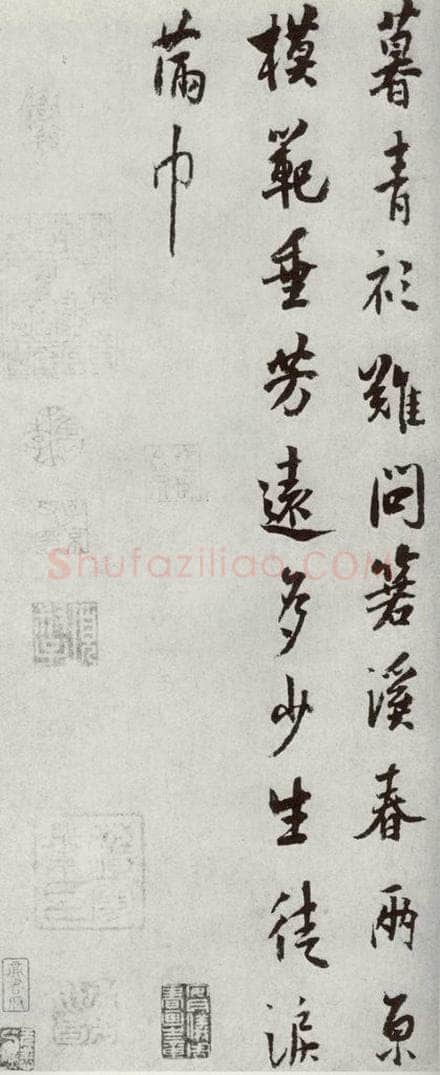 暮青衫難問箬溪春兩京
模範垂芳遠多少生徒淚
滿巾
Shufaziliao.COM